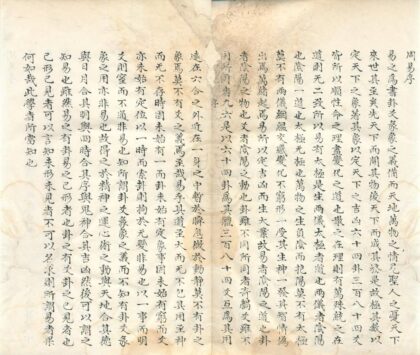 周易序
易之為書卦爻彖象之義備而天地萬物之情見聖人之憂天下
來世其至矣先天下而開其物後天下而成其務是故極其數以
定天下之象著其象以定天下之吉凶六十四卦三百八十四爻
皆所以順性命之理盡變化之道也散之在理則有萬殊統之在
道則无二致所以易有太極是生兩儀太極者道也兩儀者陰陽
也陰陽一道也太極无極也萬物之生負陰而抱陽莫不有太極
莫不有兩儀絪縕交感變化不窮形一受其生神一發其智情偽
出焉萬緒起焉易所以定吉凶而生大業故易者陰陽之道也卦
者陰陽之物也爻者陰陽之動也卦雖不同所同者奇耦爻雖不
同所同者九六是以六十四卦為其體三百八十四爻互為其用
遠在六合之外近在一身之中暫於瞬息微於動靜莫不有卦之
象焉莫不有爻之義焉至哉易乎其道至大而无不包其用至神
而无不存時固未始有一而卦未始有定象事固未始有窮而爻
亦未始有定位以一時而索卦則拘於无變非易也以一事而明
爻則窒而不通非易也知所謂卦爻彖象之義而不知有卦爻彖
象之用亦非易也故得之於精神之運心術之動與天地合其德
與日月合其明與四時合其序與鬼神合其吉凶然後可以謂之
知易也雖然易之有卦易之已形者也卦之有爻卦之已見者也
已形已見者可以言知未形未見者不可以名求則所謂易者果
何如哉此學者所當知也